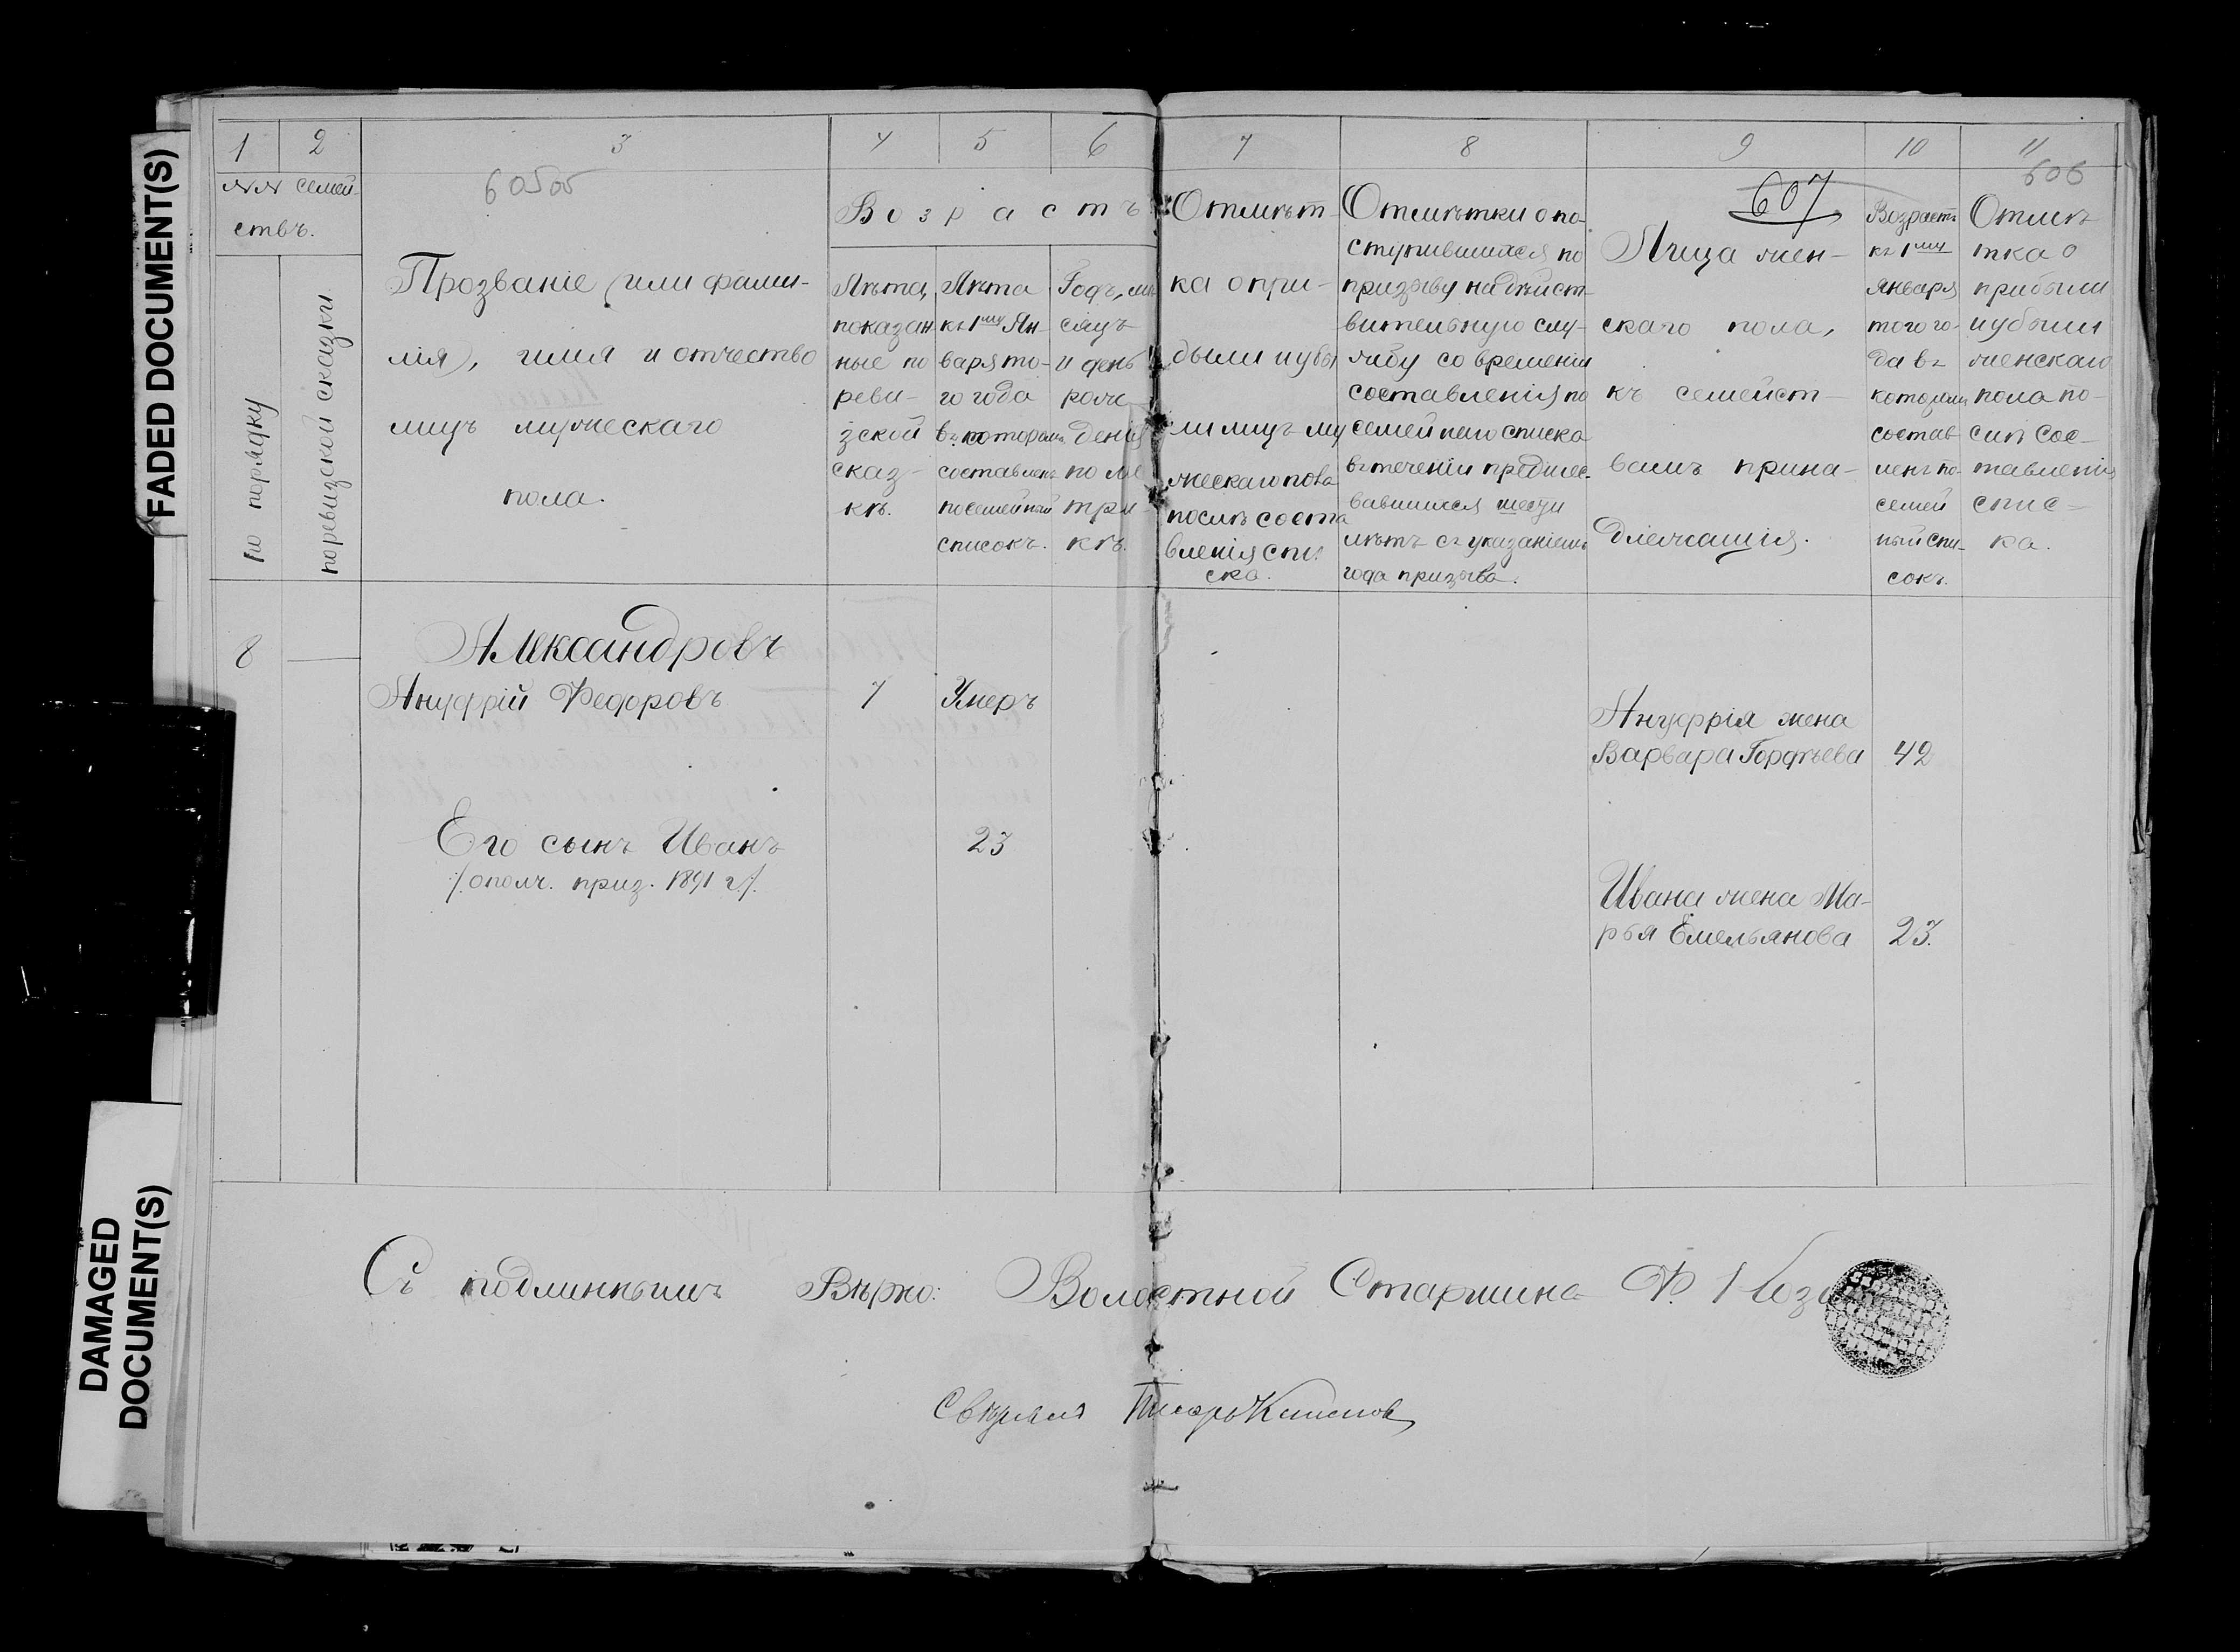 FADED DOCUMENT(S)
DAMAGED
DOCUMENT(S)
1 2 3 4 5 6 7 8 9 10 11
606
607
№№ семей-
ствъ.
по порядку
по ревизской сказки
Прозваніе (или фами-
лія), имя и отчество
лицъ мужескаго
пола.
Возрастъ
Лѣта,
показан
ные по
реви-
зской
сказ-
кѣ.
Лѣта
къ 1му Ян-
варя то-
го года
въ которомъ
составленъ
посемейный
списокъ.
Годъ, мѣ
сяцъ
и день
рож
денія
по ме
три-
кѣ.
Отмѣт-
ка о при-
были и убы
ли лицъ му
жескаго пола
послѣ соста
вленія спи
ска.
Отмѣтки о по-
ступившихся по
призыву на дѣйст-
вительную слу-
жбу со времени
составленія по
семейнаго списка
въ теченіи предшес-
вавшихся шести
лѣтъ съ указаніемъ
года призыва.
Лица жен-
скаго пола,
къ семейст-
вамъ прина-
длежащія.
Возрастъ
къ 1му
января
того го-
да въ
которомъ
состав
ленъ по-
семей
ный спи-
сокъ.
Отмѣ
тка о
прибыли
и убыли
женскаго
пола по-
слѣ сос-
тавленія
спис-
ка.
8
Александровъ
Ануфрій Федоровъ 7 Умеръ
Ануфрія жена
Варвара Горфѣева 42
Его сынъ Иванъ 23
/. ополч. приз. 1891 г/.
Ивана жена Ма-
рья Емельянова 23.
Съ подлиннымъ Вѣрно: Волостной Старшина Ф.
Свѣрялъ Писарь